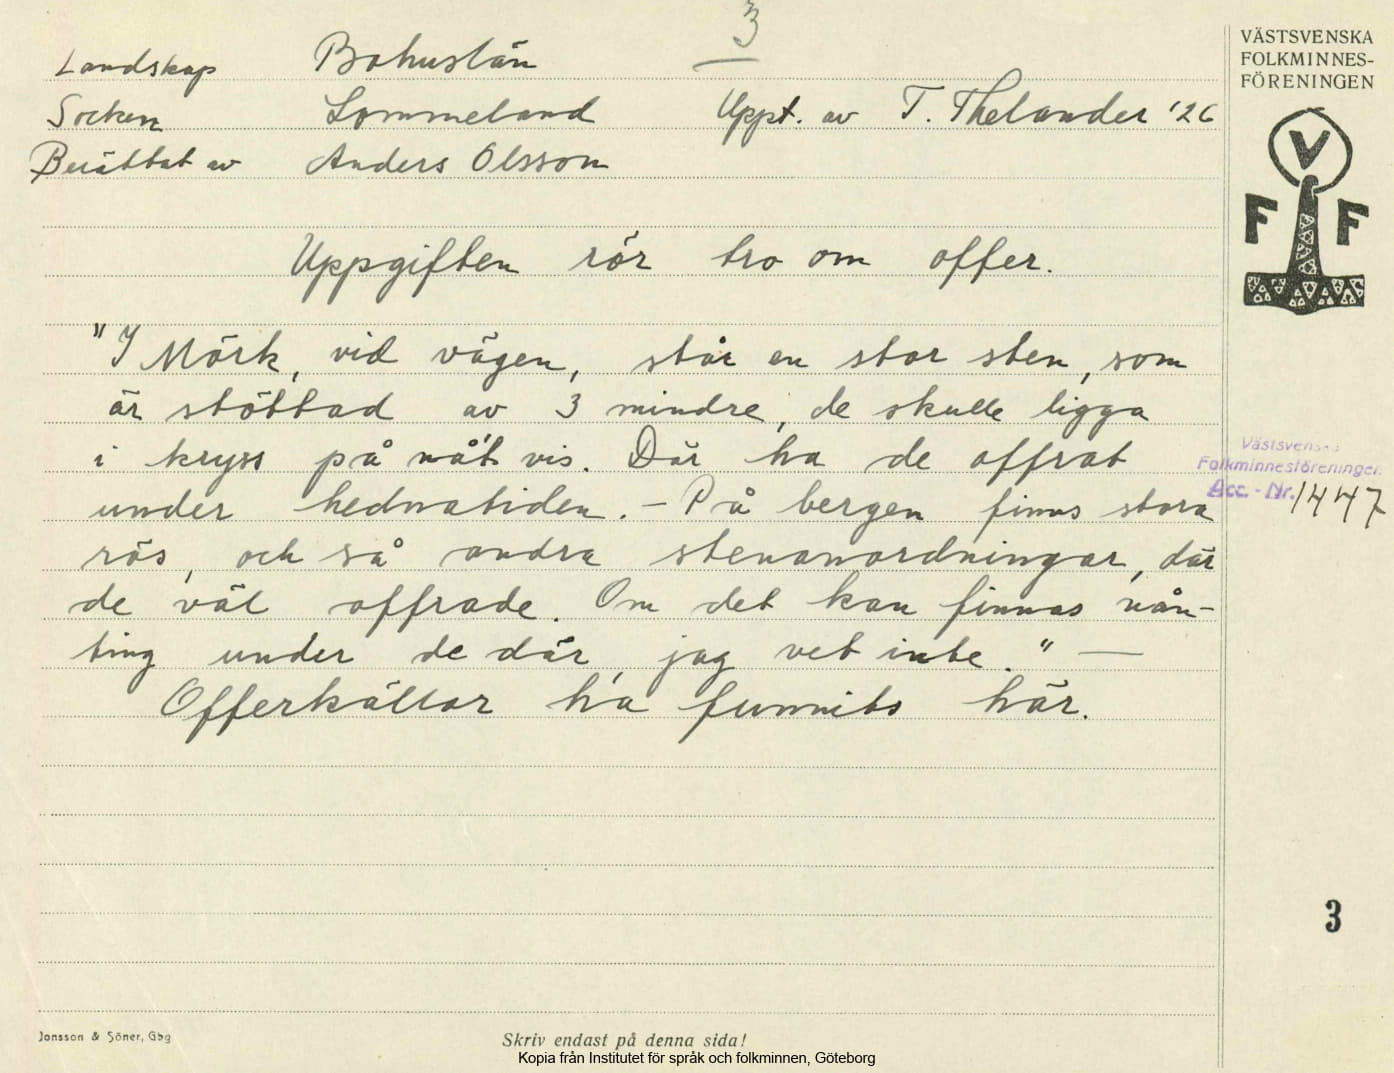 3
Landskap Bohuslän
Socken Lommeland Uppt. av T. Thelander '26
Berättat av Anders Olsson
Uppgiften rör tro om offer.
"I Mörk, vid vägen, står en stor sten, som
är stöttad av 3 mindre, de skulle ligga
i kryss på nå't vis. Där ha de offrat
under hednatiden. – På bergen finns stora
rös, och så andra stenanordningar, där
de väl offrade. Om det kan finnas nån-
ting under de där, jag vet inte." —
Offerkällor ha funnits här.
VÄSTSVENSKA
FOLKMINNES-
FÖRENINGEN
V
F F
Västsvenska
Folkminnesföreningen
Acc.-Nr. 1447
3
Jonsson & Söner, Gbg
Skriv endast på denna sida!
Kopia från Institutet för språk och folkminnen, Göteborg